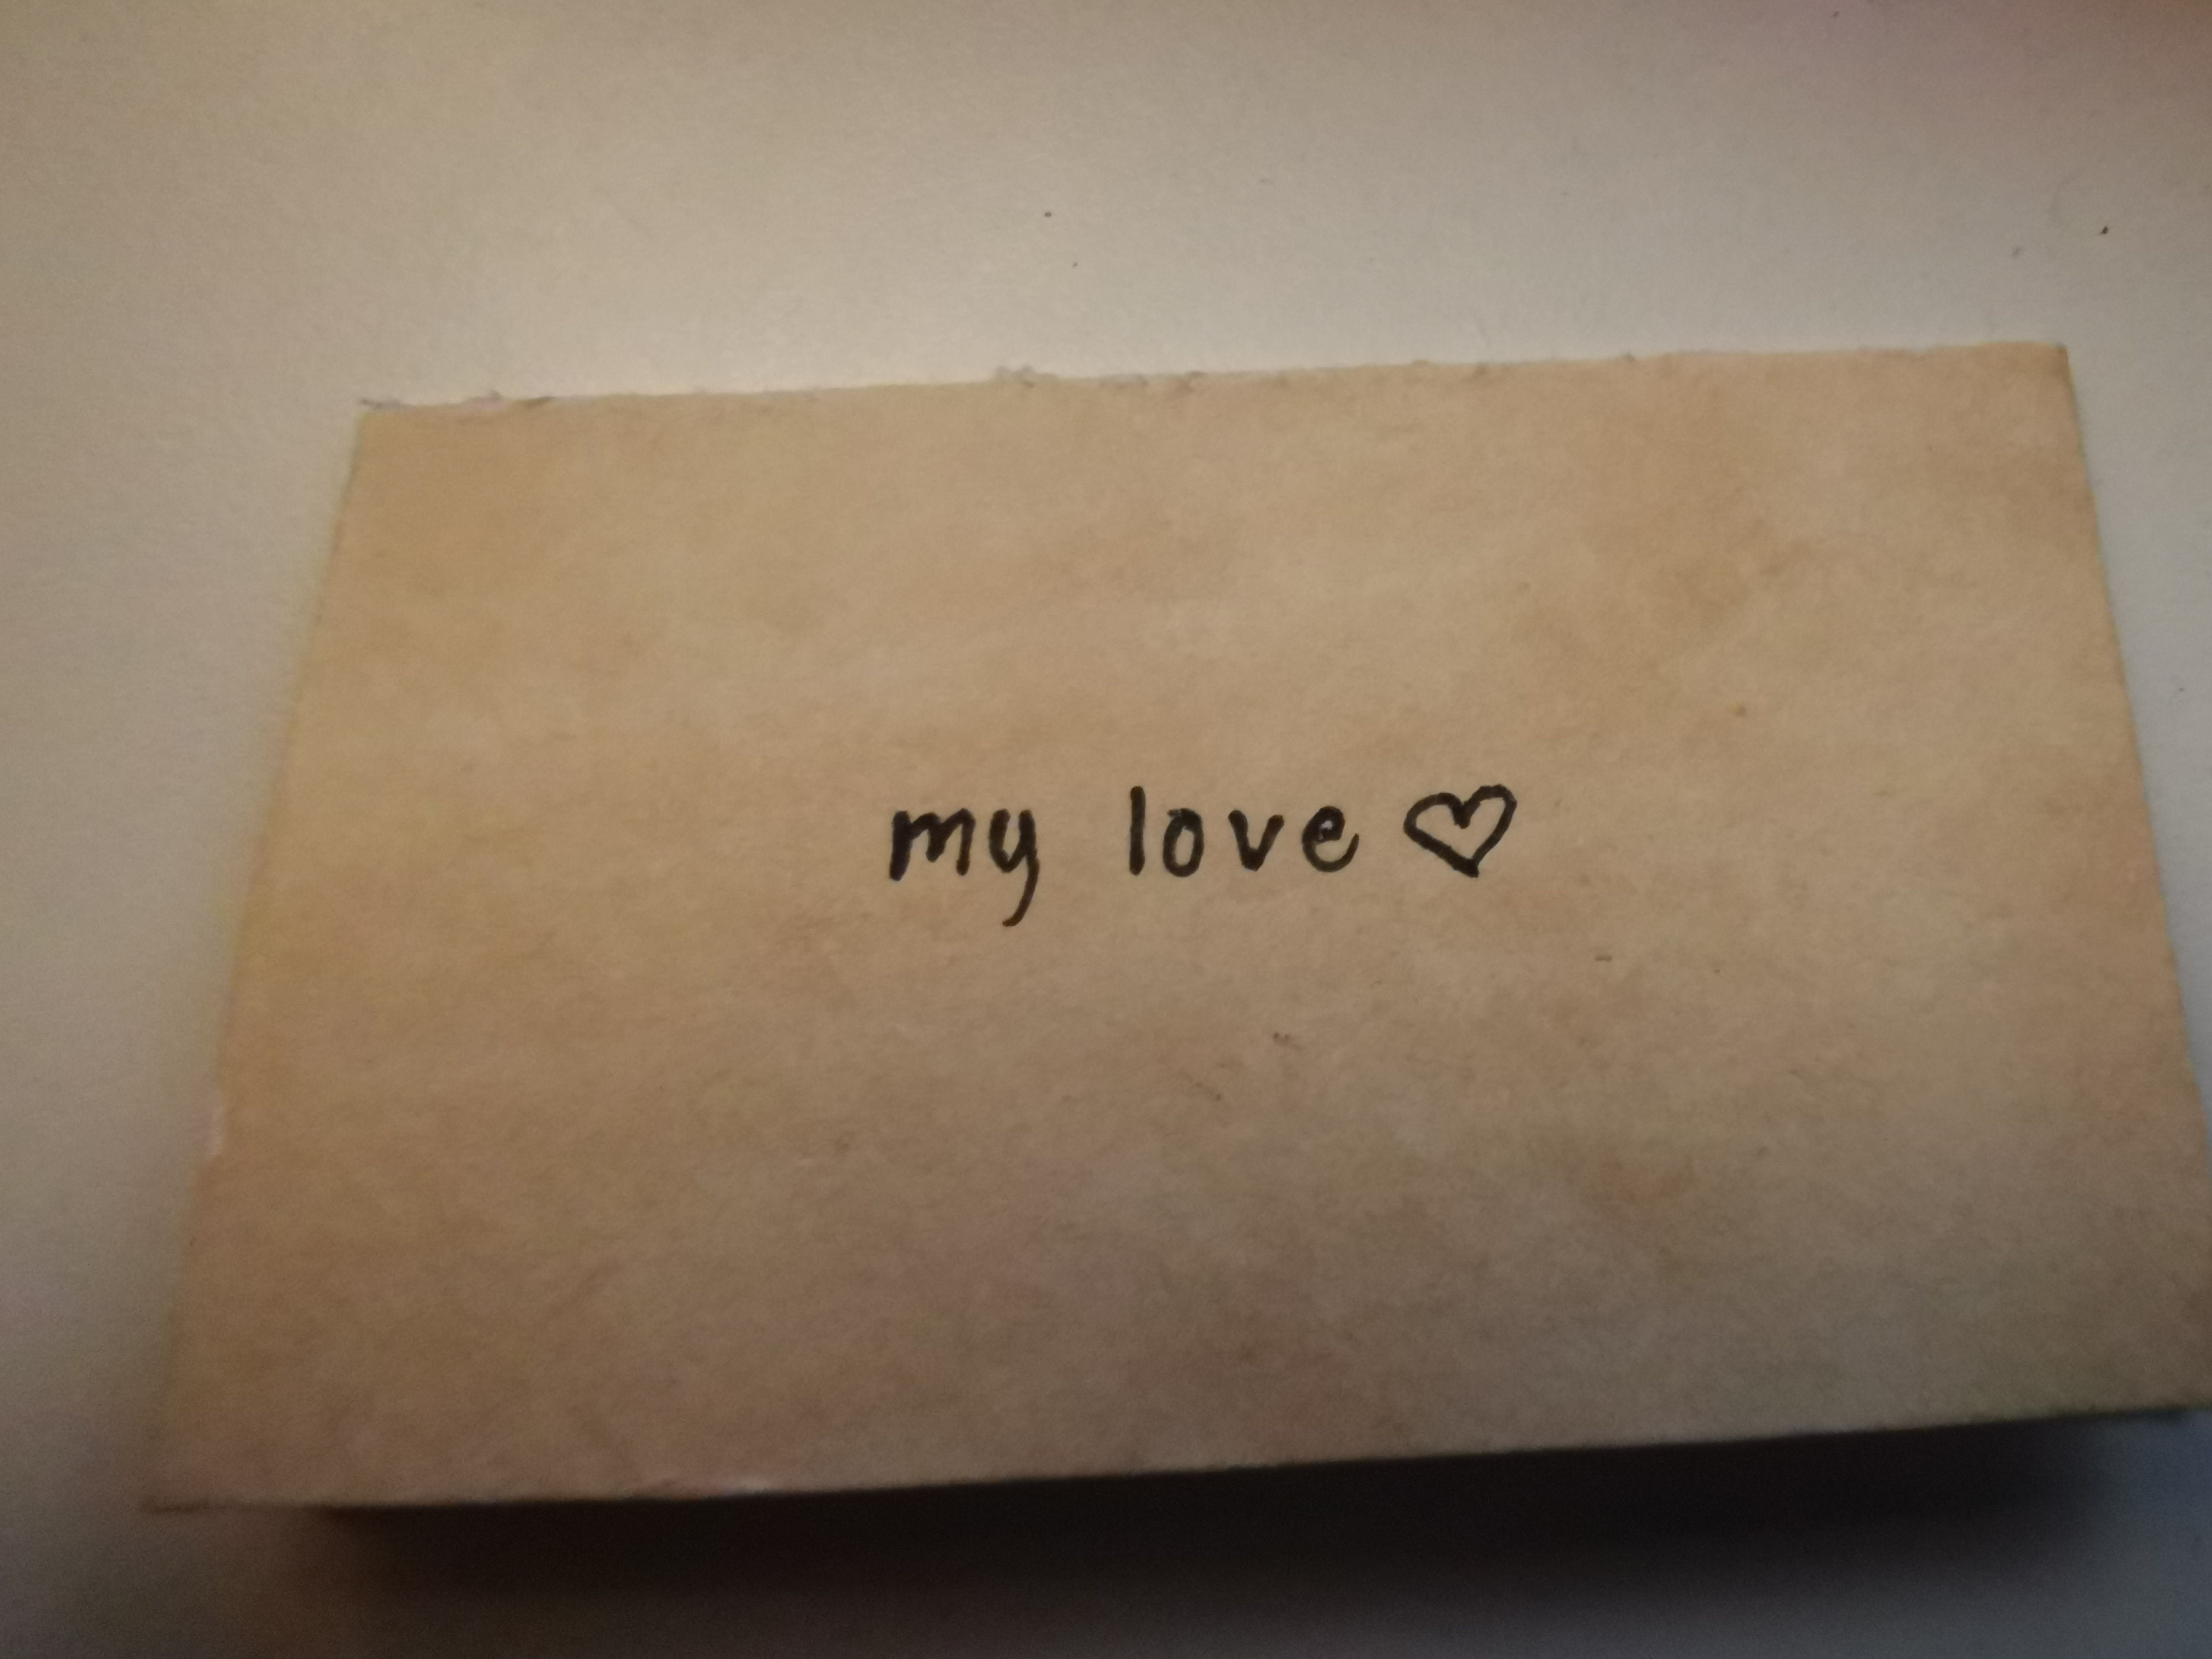 my love ♡